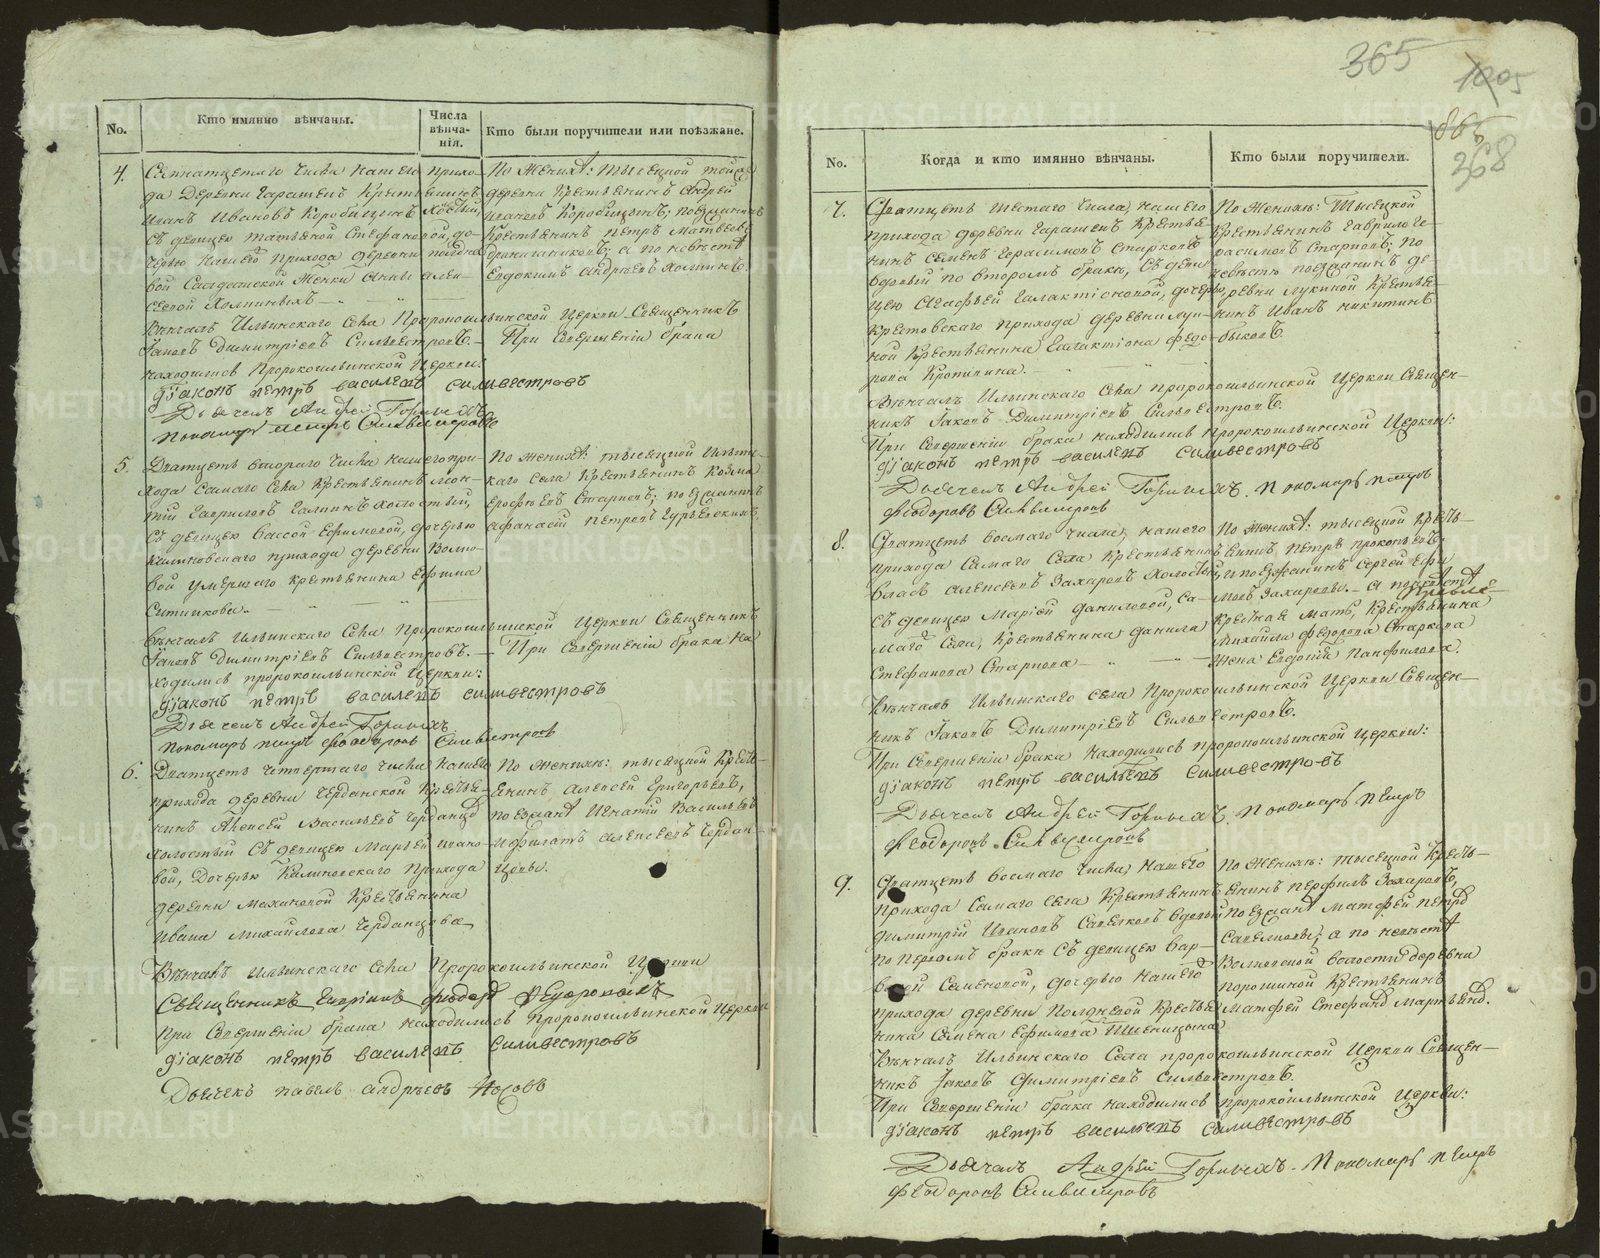 365
1005
865
368
No.
Кто имянно вѣнчаны.
Числа вѣнча-нія.
Кто были поручители или поѣзжане.
4.
Семнатцетаго Числа Нашего прихо-
да Деревни Гарашенъ Крестьянинъ
Иванъ Ивановъ Коробицынъ Холостый,
съ девицею Татьяной Стефановой, до-
черью нашего прихода деревни
вой Салдатской Женки Анны Алек-
сеевой Хомининыхъ
По Женихѣ: тысяцкой той
деревни Крестьянинъ Андрей
Ивановъ Коробицынъ; поезжанинъ
Крестьянинъ Петръ Матвеевъ
а по невѣстѣ
Евдокимъ Андреевъ Хоминъ.
Вѣнчалъ Ильинскаго Села Пророкоильинской Церкви Священникъ
Іаковъ Димитріевъ Сильвестровъ. — При Совершеніи брака
находились Пророкоильинской Церкви:
діаконъ петръ васильевъ силивестровъ
Дьячекъ Андрей Горныхъ
пономарь петръ Сильвестровъ
5.
Дватцеть втораго Числа нашего при-
хода Самаго Села Крестьянинъ Леон-
тій Гавриловъ Галинъ холостый,
съ девицею Вассой Ефимовой, дочерью
Калиновскаго прихода деревни Волко-
вой умершаго Крестьянина Ефима
Ситникова.
По женихѣ: тысяцкой Ильин-
скаго села Крестьянинъ Козма
Ерофеевъ Старковъ; поезжанинъ
Афанасій Петровъ Гурьевскихъ.
Вѣнчалъ Ильинскаго Села Пророкоильинской Церкви Священникъ
Іаковъ Димитріевъ Сильвестровъ. — При Совершеніи брака на
ходились пророкоильинской Церкви:
діаконъ петръ васильевъ силивестровъ
Дьячекъ Андрей Горныхъ
пономарь петръ феодоровъ Сильвестровъ
6.
Дватцеть четвертаго числа нашего
прихода деревни Черданской Крестья-
нинъ Алексей Васильевъ Черданцовъ
холостый съ девицею Марьей Ивано-
вой, Дочерью Калиновскаго прихода
деревни Махановой Крестьянина
Ивана Михайлова Черданцова
По женихѣ: тысяцкой Кресть-
янинъ Алексей Григорьевъ,
поезжанѣ Игнатій Васильевъ
и Филатъ Алексеевъ Чердан-
цовы.
Вѣнчалъ Ильинскаго Села Пророкоильинской Церкви
Священникъ Георгій феодоровъ
При Совершеніи брака находились Пророкоильинской Церкви
діаконъ петръ васильевъ силивестровъ
Дьячекъ павелъ андреевъ Носовъ
No.
Когда и кто имянно вѣнчаны.
Кто были поручители.
7.
Дватцеть шестаго числа, нашего
прихода деревни Гарашенъ Крестья-
нинъ Семенъ Герасимовъ Старковъ
вдовый по второмъ бракѣ, съ деви-
цею Агафьей Галактіоновой, дочерью
Крестовскаго прихода деревни Луки-
ной Крестьянина Галактіона Федо-
рова Кропинина.
По женихѣ: Тысяцкой
Крестьянинъ Гаврило Ге-
расимовъ Старковъ; по
невѣстѣ поезжанинъ де-
ревни Лукиной Крестья-
нинъ Иванъ Никитинъ
Быковъ.
Вѣнчалъ Ильинскаго Села Пророкоильинской Церкви Священ-
никъ Іаковъ Димитріевъ Сильвестровъ.
При Совершеніи брака находились пророкоильинской Церкви:
діаконъ петръ васильевъ силивестровъ
Дьячекъ Андрей Горныхъ. Пономарь петръ
феодоровъ Сильвестровъ
8.
Дватцеть восмаго числа, нашего
прихода Самаго Села Крестьянинъ
Власъ Алексеевъ Захаровъ холостый,
съ девицею Марьей Даниловой, Са-
маго Села, Крестьянина Данила
Стефанова Старкова
По женихѣ: тысяцкой Кресть-
янинъ Петръ Прокопьевъ,
и поезжанинъ Сергей Ефи
мовъ Захаровы. — А по невѣстѣ
Крестная Мать, Крестьянина
Михайла Федорова Старкова
Жена Евдокія Панфилова.
Вѣнчалъ Ильинскаго Села Пророкоильинской Церкви Священ-
никъ Іаковъ Димитріевъ Сильвестровъ.
При Совершеніи брака находились пророкоильинской Церкви:
діаконъ петръ васильевъ силивестровъ
Дьячекъ Андрей Горныхъ, Пономарь петръ
феодоровъ Сильвестровъ
9.
Дватцеть восмаго Числа, нашего
прихода Самаго Села Крестьянинъ
Димитрій Ивановъ Савелковъ вдовый
по первомъ бракѣ съ девицею Вар-
варой Семеновой, дочерью нашего
прихода деревни Полдневой Крестья-
нина Семена Ефимова Пшеницына
По женихѣ: тысяцкой Кресть-
янинъ Перфилъ Захаровъ,
поезжанѣ Матфей Петровъ
Савелковы; а по невѣстѣ
волости деревни
Порошиной Крестьянинъ
Матфей Стефановъ Мартьяновъ.
Вѣнчалъ Ильинскаго Села пророкоильинской Церкви Священ-
никъ Іаковъ Димитріевъ Сильвестровъ.
При Совершеніи брака находились пророкоильинской Церкви:
діаконъ петръ васильевъ силивестровъ
Дьячекъ Андрей Горныхъ. Пономарь петръ
феодоровъ Сильвестровъ